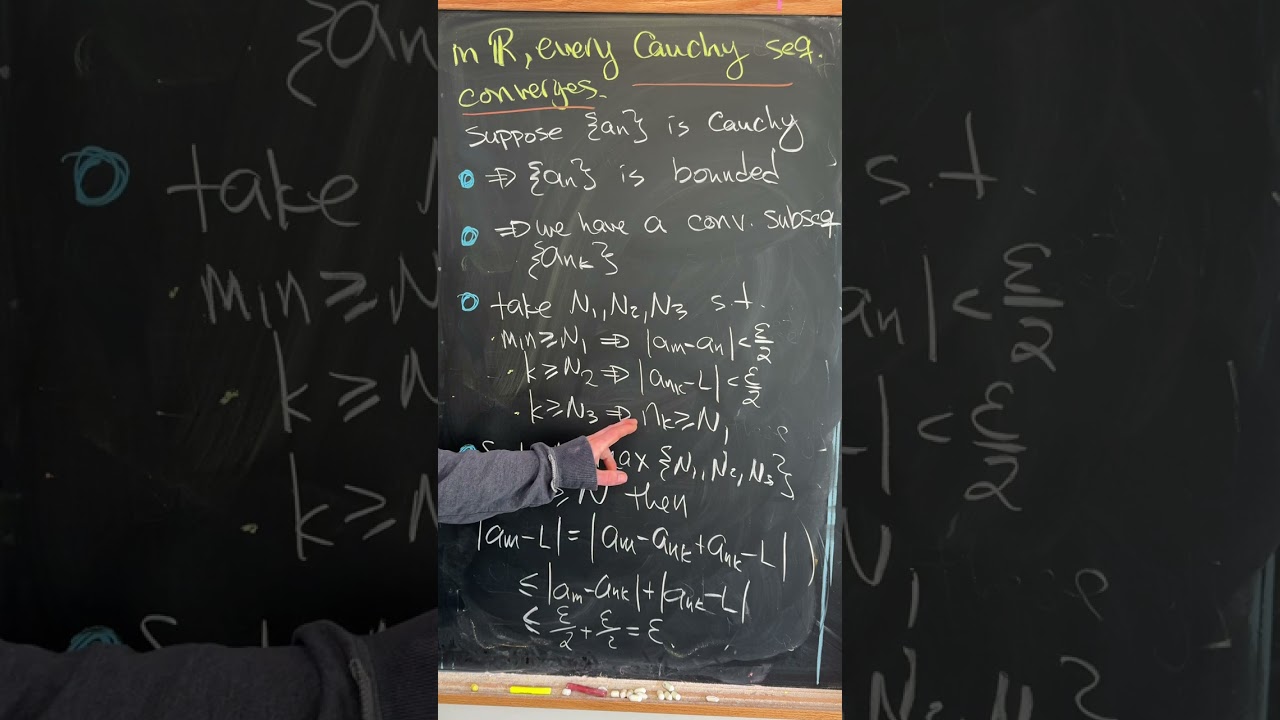 in ℝ, every Cauchy seq.
converges.
Suppose {an} is Cauchy
⇒ {an} is bounded
⇒ we have a conv. subseq
{ank}
take N1, N2, N3 s.t.
m,n ≥ N1 ⇒ |am-an| < ε/2
k ≥ N2 ⇒ |ank-L| < ε/2
k ≥ N3 ⇒ nk ≥ N1
{N1, N2, N3}
≥ N then
|am-L| = |am-ank+ank-L|
≤ |am-ank| + |ank-L|
≤ ε/2 + ε/2 = ε